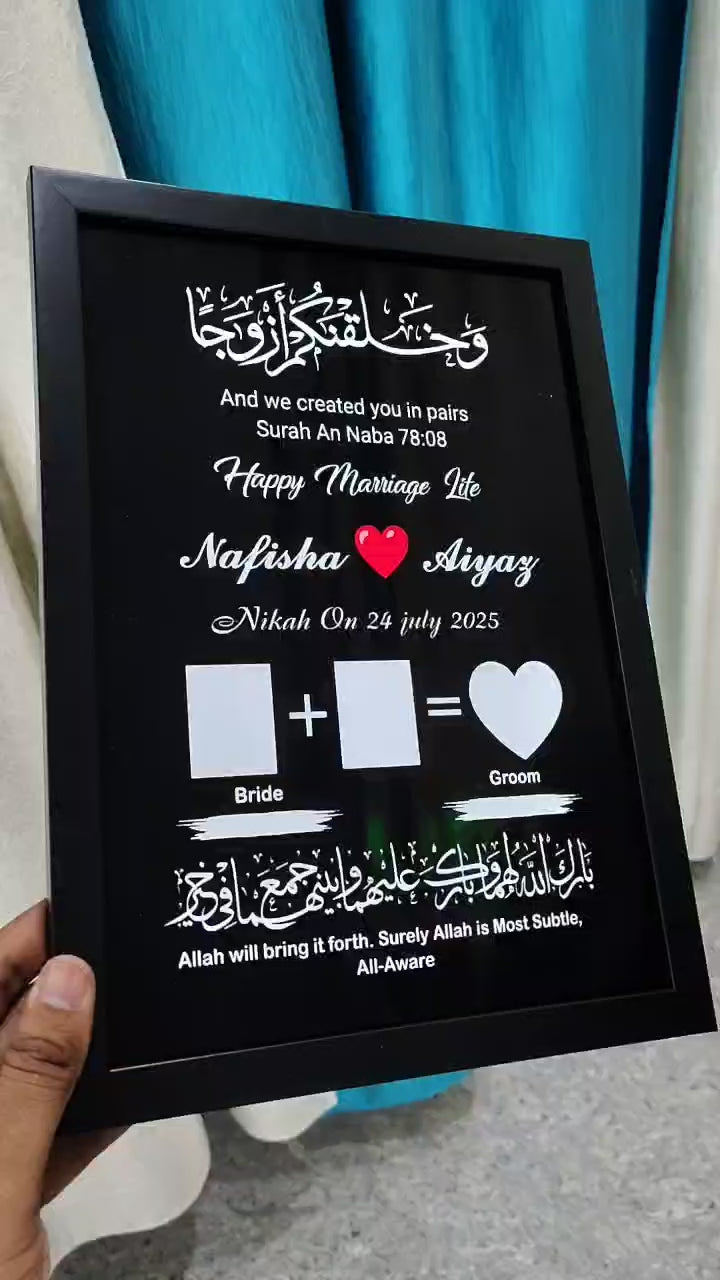 وَخَلَقْنَٰكُمْ أَزْوَٰجًا
And we created you in pairs
Surah An Naba 78:08
Happy Marriage Life
Nafisha ❤️ Aiyaz
Nikah On 24 july 2025
+ =
Bride
Groom
بارك الله لهما وبارك عليهما وجمع بينهما في خير
Allah will bring it forth. Surely Allah is Most Subtle,
All-Aware